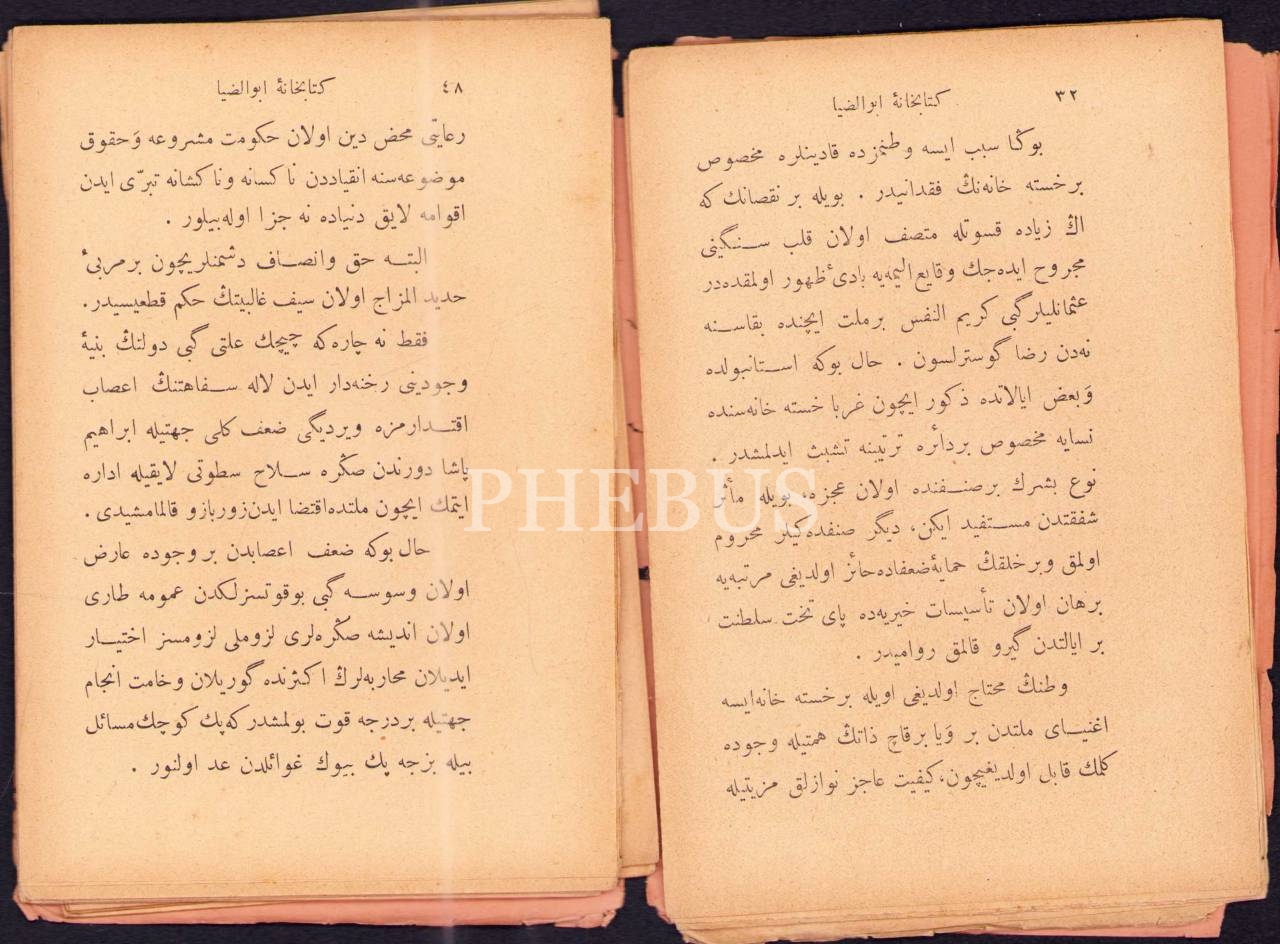 ٣٢ كتابخانهٔ ابوالضيا
بوڭا سبب ايسه وطنمزده قادينلره مخصوص
برخسته خانه‌نڭ فقدانيدر . بويله بر نقصانك كه
اڭ زياده قسوتله متصف اولان قلب سنگينی
مجروح ايده‌جك وقايع اليمه‌يه بادیٔ ظهور اولمقده‌در
عثمانليلر گبی كريم النفس برملت ايچنده بقاسنه
نه‌دن رضا گوسترلسون . حال بوكه استانبولده
وَبعض ايالاتده ذكور ايچون غربا خسته خانه‌سنده
نسايه مخصوص بردائره ترتيبنه تشبث ايدلمشدر .
نوع بشرك برصنفنده اولان عجزه، بويله مأثر
شفقتدن مستفيد ايكن، ديگر صنفده‌كيلر محروم
اولمق وبرخلقڭ حمايهٔ ضعفاده حائز اولديغی مرتبه‌يه
برهان اولان تأسيسات خيريه‌ده پای تخت سلطنت
بر ايالتدن گيرو قالمق رواميدر .
وطنڭ محتاج اولديغی اويله برخسته خانه‌ايسه
اغنيای ملتدن بر وَيا برقاچ ذاتڭ همتيله وجوده
كلمك قابل اولديغيچون، كيفيت عاجز نوازلق مزيتيله
٤٨ كتابخانهٔ ابوالضيا
رعايتی محض دين اولان حكومت مشروعه وَحقوق
موضوعه‌سنه انقياددن ناكسانه وناكشانه تبرّی ايدن
اقوامه لايق دنياده نه جزا اوله‌بيلور .
البته حق وانصاف دشمنلريچون برمربیٔ
حديد المزاج اولان سيف غالبيتڭ حكم قطعيسيدر.
فقط نه چاره‌كه چيچك علتی گبی دولتڭ بنيهٔ
وجودينی رخنه‌دار ايدن لاله سفاهتنڭ اعصاب
اقتدارمزه ويرديگی ضعف كلی جهتيله ابراهيم
پاشا دورندن صڭره سلاح سطوتی لايقيله اداره
ايتمك ايچون ملتده اقتضا ايدن زوربازو قالمامشيدی.
حال بوكه ضعف اعصابدن بر وجوده عارض
اولان وسوسه گبی بوقوتسزلكدن عمومه طاری
اولان انديشه صڭره‌لری لزوملی لزومسز اختيار
ايديلان محاربه‌لرڭ اكثرنده گوريلان وخامت انجام
جهتيله بردرجه قوت بولمشدر كه‌پك كوچك مسائل
بيله بزجه پك بيوك غوائلدن عد اولنور .
PHEBUS